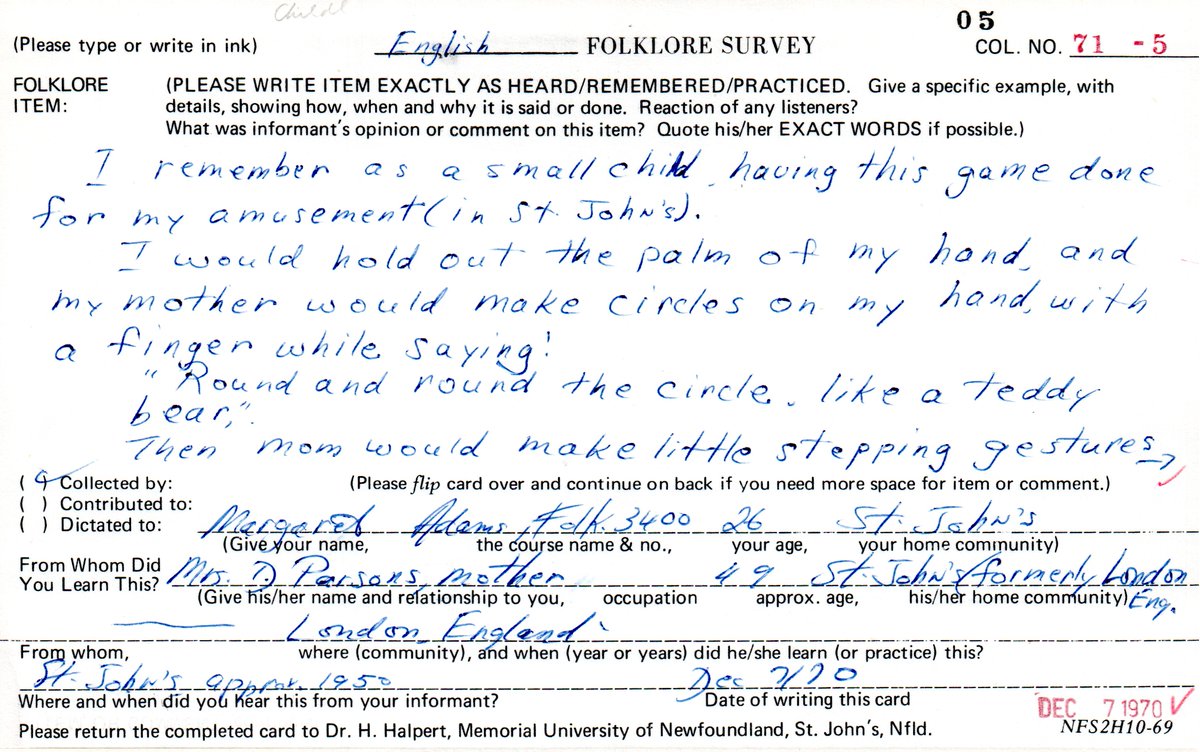 Child
05
(Please type or write in ink) English FOLKLORE SURVEY COL. NO. 71 - 5
FOLKLORE (PLEASE WRITE ITEM EXACTLY AS HEARD/REMEMBERED/PRACTICED. Give a specific example, with
ITEM: details, showing how, when and why it is said or done. Reaction of any listeners?
What was informant's opinion or comment on this item? Quote his/her EXACT WORDS if possible.)
I remember as a small child, having this game done
for my amusement (in St. John's).
I would hold out the palm of my hand, and
my mother would make circles on my hand, with
a finger while saying:
"Round and round the circle, like a teddy
bear,".
Then mom would make little stepping gestures →
( ) Collected by: (Please flip card over and continue on back if you need more space for item or comment.)
( ) Contributed to:
( ) Dictated to: Margaret Adams, Folk. 3400 26 St. John's
(Give your name, the course name & no., your age, your home community)
From Whom Did Mrs. D Parsons, mother 49 St. John's (formerly London
You Learn This? (Give his/her name and relationship to you, occupation approx. age, his/her home community) Eng.
London, England
From whom, where (community), and when (year or years) did he/she learn (or practice) this?
St. John's approx. 1950 Dec 7/70
Where and when did you hear this from your informant? Date of writing this card
DEC 7 1970
Please return the completed card to Dr. H. Halpert, Memorial University of Newfoundland, St. John's, Nfld. NFS2H10-69